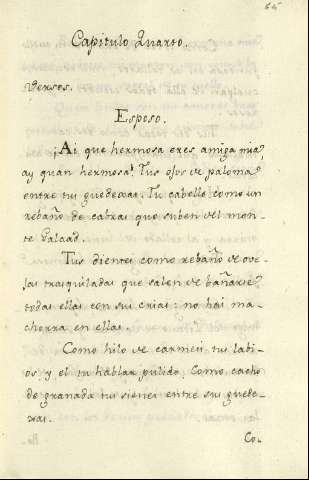 65
Capitulo Quarto.
Versos.
Esposo.
¡Ai que hermosa eres amiga mia,
ay quan hermosa! Tus ojos de paloma
entre tus guedexas. Tu cabello como un
rebaño de cabras que suben del mon-
te Galaad.
Tus dientes como rebaño de ove-
jas trasquiladas que salen de bañarse,
todas ellas con sus crias: no hai ma-
chorra en ellas.
Como hilo de carmesi tus labi-
os, y el tu hablar pulido. Como cacho
de granada tus sienes entre sus guede-
xas.
Co-